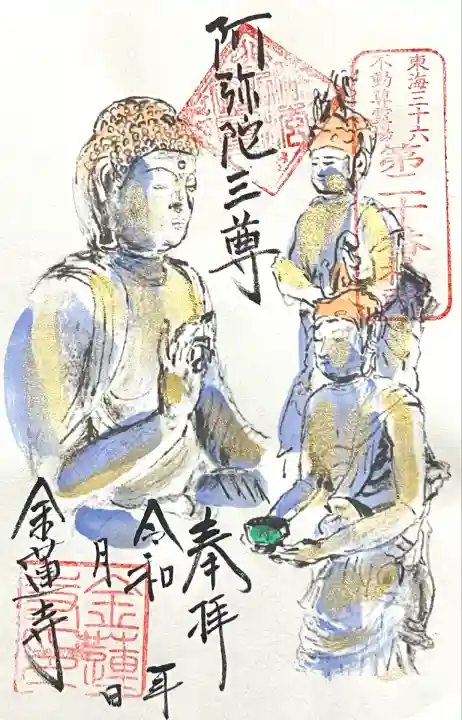 東海三十六
不動尊霊場
第二十番
阿弥陀三尊
奉拝
令和 年
月 日
金蓮寺